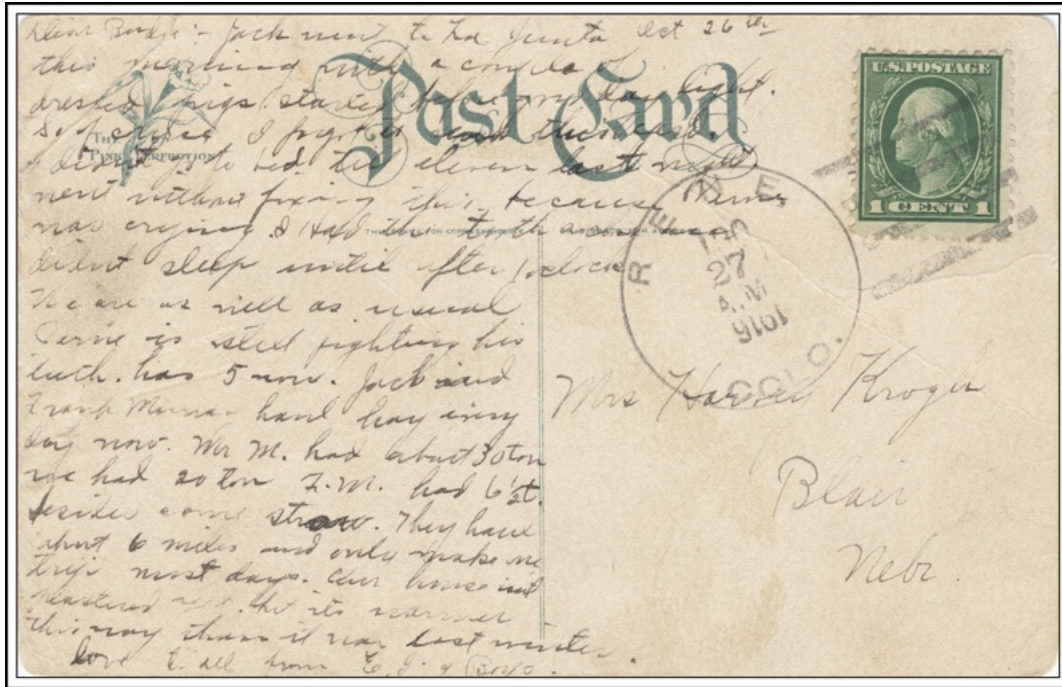 Dear - Jack went to La Junta Oct 26th
this morning with a couple of
dressed pigs, started before day light.
I forgot to send this
I didn't go to bed till eleven last night
went without fixing this, because Verne
was crying. I had tooth ache
didnt sleep until after 1 oclock
We are as well as usual
Verne is still fighting his
teeth. has 5 now. Jack and
Frank haul hay every
day now. Mr M. had about 30 ton
we had 20 ton F.M. had 6 1/2 t.
besides some straw. They haul
about 6 miles and only make one
trip most days. Our house isnt
plastered yet but its warmer
this way than it was last winter.
love to all from E. J. & Boys.
Post Card
THE ON
PINK PERFECTION
U.S. POSTAGE
1 CENT 1
COLO.
27
AM
1916
Mrs Kroger
Blair
Nebr.